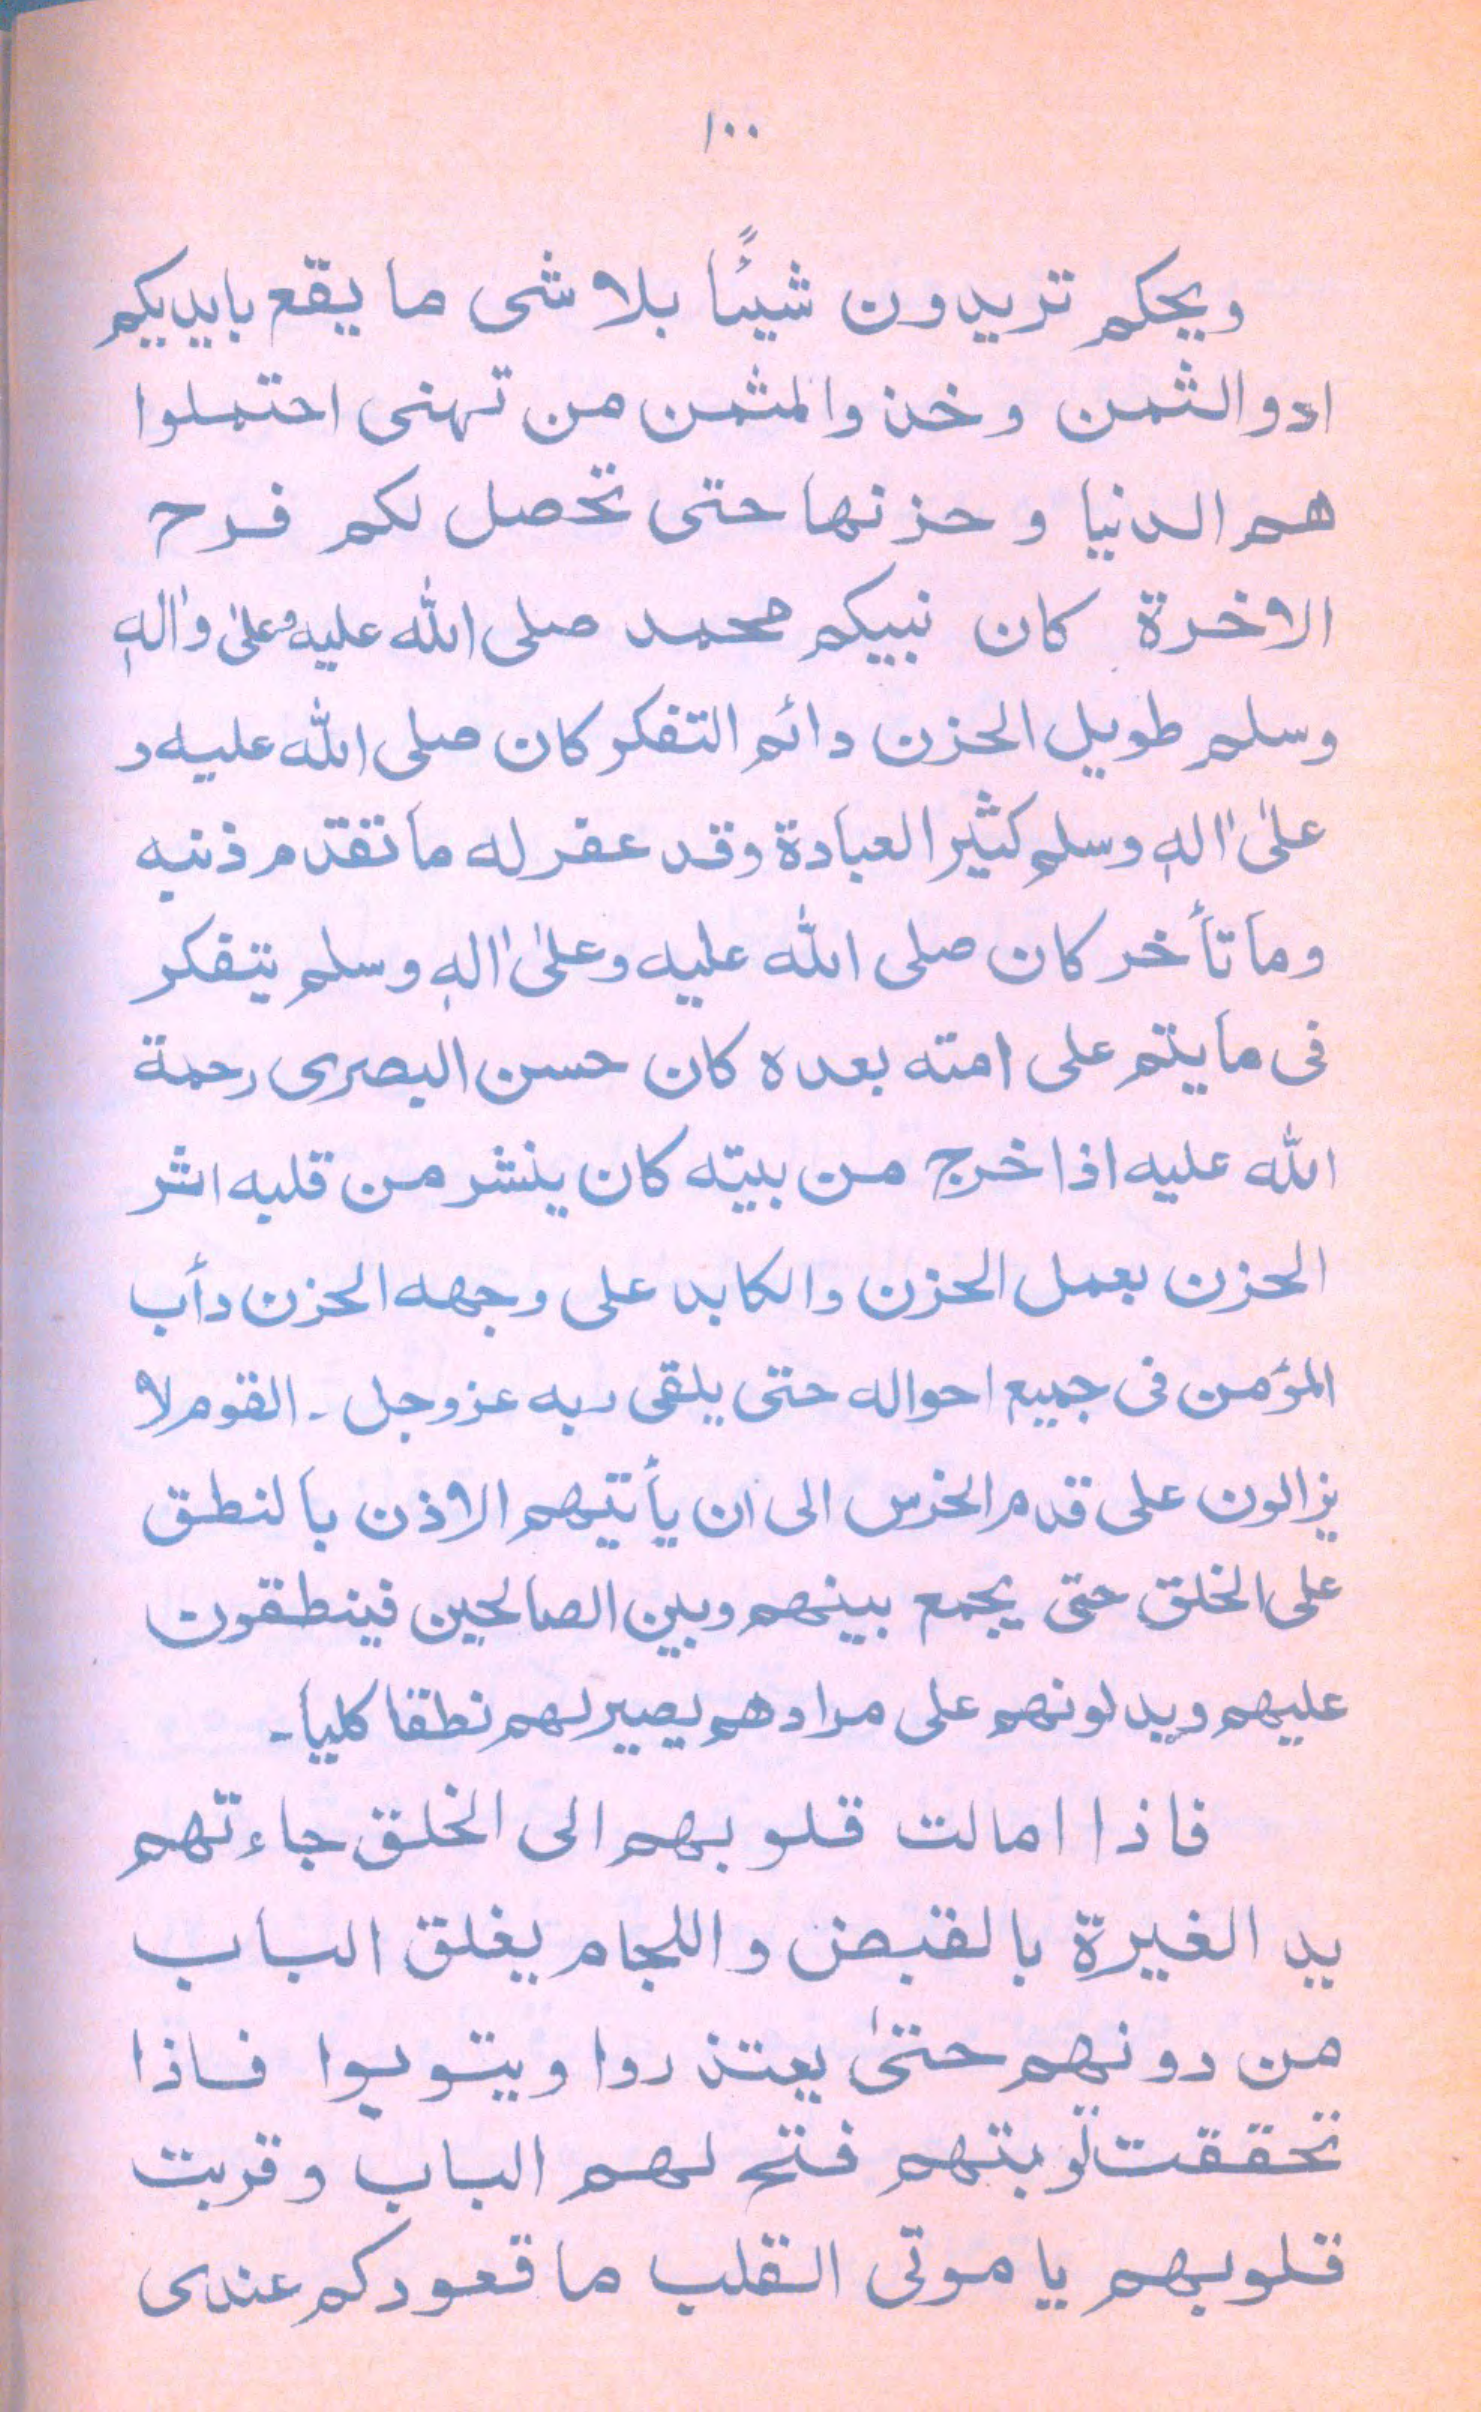 ١٠٠
ويحكم تريدون شيئًا بلا شى ما يقع بايديكم
ادوا الثمن وخذ والمثمن من تهنى احتملوا
هم الدنيا و حزنها حتى تحصل لكم فرح
الاخرة كان نبيكم محمد صلى الله عليه وعلىٰ واٰلهٖ
وسلم طويل الحزن دائم التفكر كان صلى الله عليه و
علىٰ اٰلهٖ وسلم كثير العبادة وقد عقر له ما تقدم ذنبه
وما تأخر كان صلى الله عليه وعلىٰ اٰلهٖ وسلم يتفكر
فى ما يتم على امته بعده كان حسن البصرى رحمة
الله عليه اذا خرج من بيته كان ينشر من قلبه اثر
الحزن بعمل الحزن والكابد على وجهه الحزن دأب
المؤمن فى جميع احواله حتى يلقى ربه عزوجل ـ القوم لا
يزالون على قدم الخرس الى ان يأتيهم الاذن بالنطق
على الخلق حتى يجمع بينهم وبين الصالحين فينطقون
عليهم ويدلونهم على مرادهم يصير لهم نطقا كليا ـ
فاذا امالت قلوبهم الى الخلق جاءتهم
يد الغيرة بالقبض واللجام يغلق الباب
من دونهم حتىٰ يعتذروا ويتوبوا فاذا
تحققت توبتهم فتح لهم الباب وقربت
قلوبهم يا موتى القلب ما قعودكم عندى